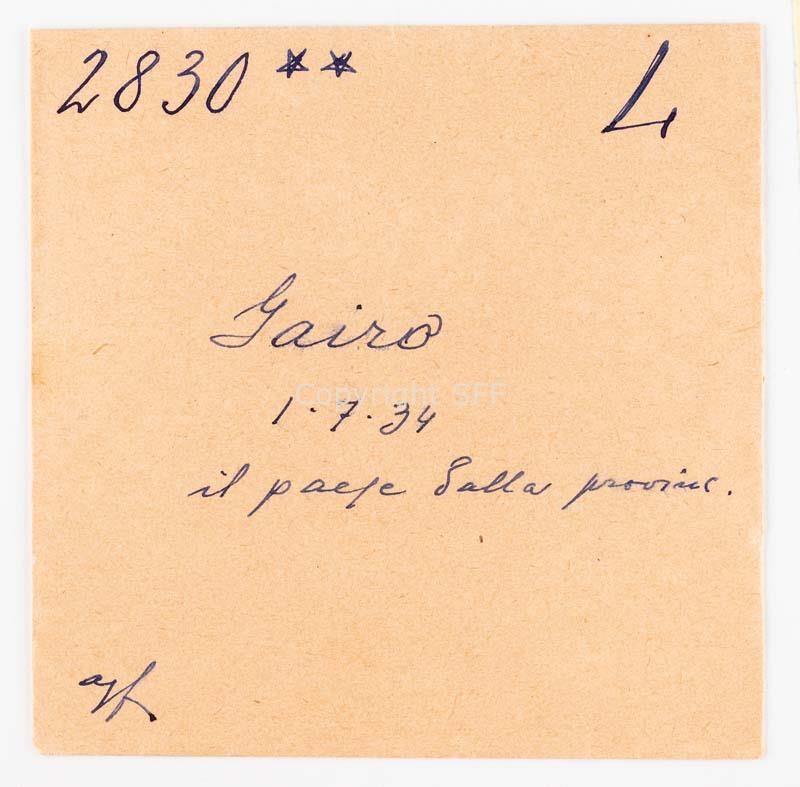 2830 ** L
Gairo
Copyright SFF
1.7.34
il paese dalla provinc.